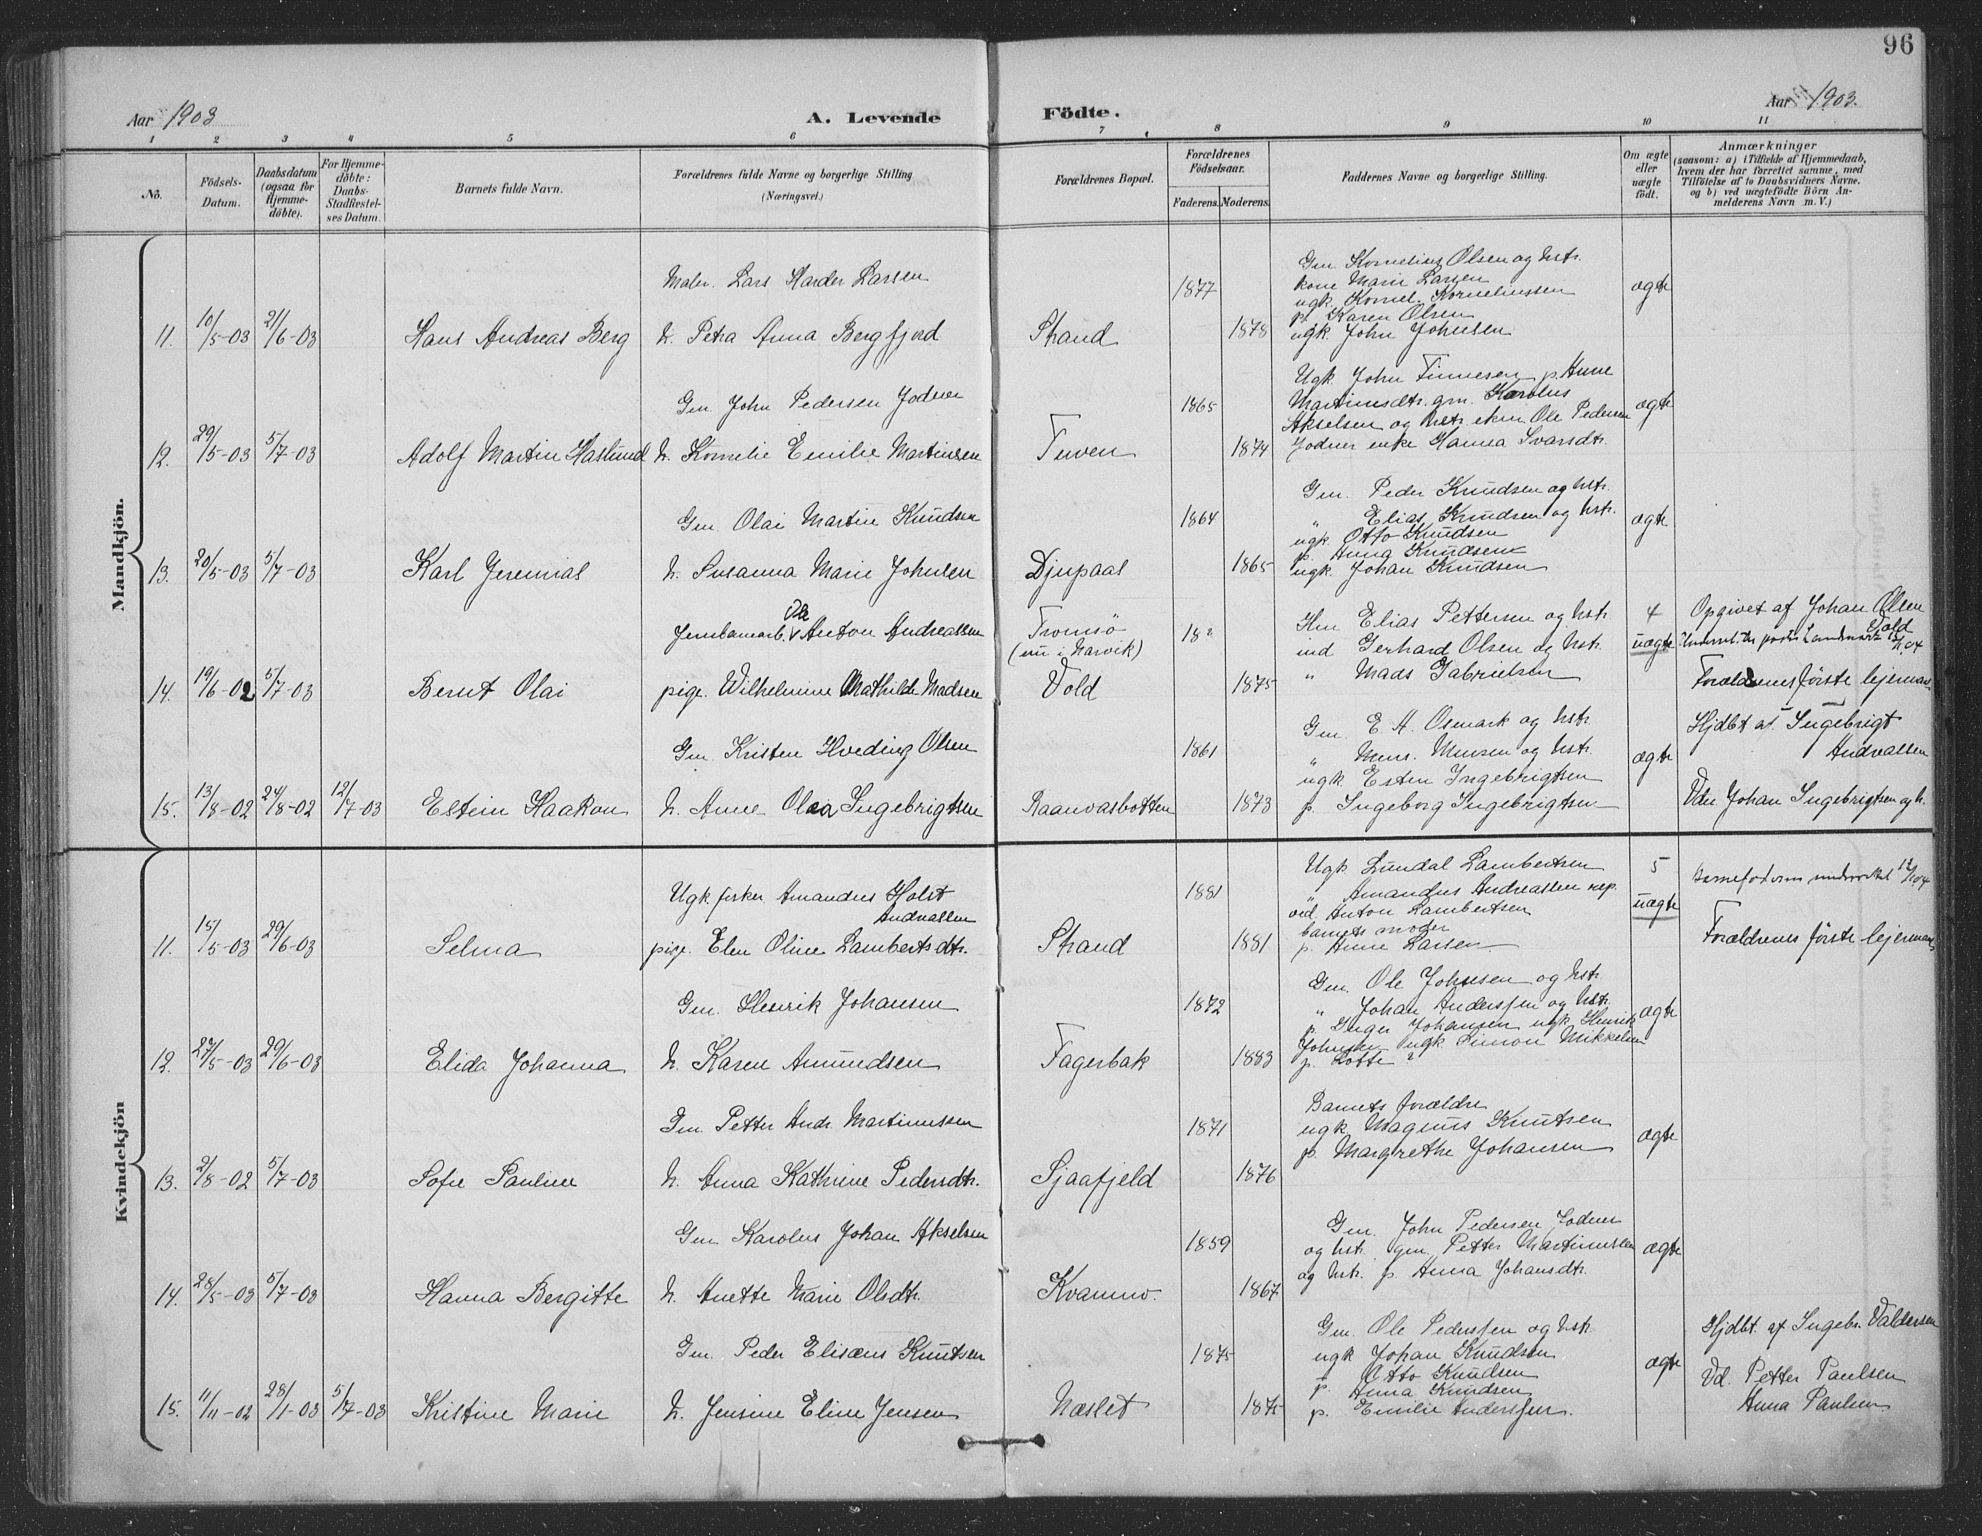 96
Aar 1903
A. Levende
Födte.
Aar 1903.
1 2 3 4 5 6 7 8 9 10 11
No.
Födsels-Datum.
Daabsdatum (ogsaa for Hjemme-döbte).
For Hjemme-döbte: Daabs-Stadfæstel-ses Datum.
Barnets fulde Navn.
Forældrenes fulde Navne og borgerlige Stilling
(Næringsvei.)
Forældrenes Bopæl.
Forældrenes Födselsaar.
Faderens. Moderens.
Faddernes Navne og borgerlige Stilling.
Om ægte eller uægte födt.
Anmærkninger
(saasom: a) i Tilfælde af Hjemmedaab,
hvem der har forrettet samme, med
Tilföielse af to Daabsvidners Navne,
og b) ved uægtefödte Börn An-
melderens Navn m. V.)
Mandkjön.
Maler. Lars Harder Larsen
1877
Gm. Kornelius Olsen og hstr.
kone Marie Larsen
ugk. Kornel. Korneliussen
p. Karen Olsen
ægte
11. 10/5-03 21/6-03 Hans Andreas Berg h. Petra Anna Bergfjord Strand 1878 ugk. John Johnsen
Gm. John Pedersen Jodner
1865
Ugk John Finnesen p. Anne
Martinsdtr. gm. Karolus
Akselsen og hstr. ekm Ole Pedersen
ægte
12. 29/5-03 5/7-03 Adolf Martin Haslund h. Kornelie Emilie Martinsen Tuven 1874 Jodner enke Hanna Svarsdtr.
Gm. Olai Martin Knudsen
1864
Gm. Peder Knudsen og hstr.
" Elias Knudsen og hstr.
ugk. Otto Knudsen
p. Anna Knudsen
ægte
13. 20/5-03 5/7-03 Karl Jeremias h. Susanna Marie Johnsen Djupaas 1865 ugk. Johan Knudsen
Jernbanearb. Ole Anton Andreassen
Tromsö
(nu i Narvik)
18
Km Elias Pettersen og hstr.
ind Gerhard Olsen og hstr.
4
uægte
Opgivet af Johan Olsen
Vold
14. 19/6-02 5/7-03 Bernt Olai pige. Wilhelmine Mathilde Madsen Vold 1875 " Mads Gabrielsen
Forældrenes förste lejermaal
Gm. Kristen Hveding Olsen
1861
Gm. E. A. Osmark og hstr.
" Mons. Monsen og hstr.
ugk Esten Ingebrigtsen
ægte
Hjdbt af Ingebrigt
Andreassen
15. 13/8-02 24/8-02 12/7-03 Estein Haakon h. Anne Olea Ingebrigtsen Raanvasbotten 1873 p. Ingeborg Ingebrigtsen
Vdr Johan Ingebrigtsen og h.
Kvindekjön
Ugk fisker Amandus Holst
Andreassen
1881
Ugk Lundal Lambertsen
" Amandus Andreassen rep.
ved. Anton Lambertsen
barnets moder
5
uægte
Barnefaderen undervirket 12/1 04
11. 15/5-03 29/6-03 Selma pige. Elen Oline Lambertsdtr. Strand 1881 p. Anne Larsen
Forældrenes förste lejermaal
Gm. Henrik Johansen
1872
Gm. Ole Johnsen og hstr.
" Johan Anderssen og hstr.
p. Inger Johansen ugk Henrik
Johnsen ugk Simon Mikkelsen
ægte
12. 27/5-03 29/6-03 Elida Johanna h. Karen Amundsen Fagerbak 1883 p. Lotte ?
Gm. Petter Andr. Martinussen
1871
Barnets forældre
ugk Magnus Knutsen
p. Margrethe Johansen
ægte
13. 2/8-02 5/7-03 Sofie Pauline h. Anna Kathrine Pedersdtr. Sjaafjeld 1876
Gm Karolus Johan Akselsen
1859
Gm. John Pedersen Jodner
og hstr. gm. Petter Martinussen
og hstr. p. Anna Johansdtr.
ægte
14. 28/5-03 5/7-03 Hanna Bergitte h. Anette Marie Olsdtr. Kvamno. 1867
Gm. Peder Elisæus Knutsen
1875
Gm. Ole Pederssen og hstr.
ugk Johan Knudsen
" Otto Knudsen
p. Anna Knudsen
ægte
Hjdbt. af Ingebr. Valdersen
Vd. Petter Paulsen
15. 11/11-02 28/1-03 5/7-03 Kristine Marie h. Jensine Eline Jensen Næslet 1875 p. Emilie Anderssen.
Anna Paulsen